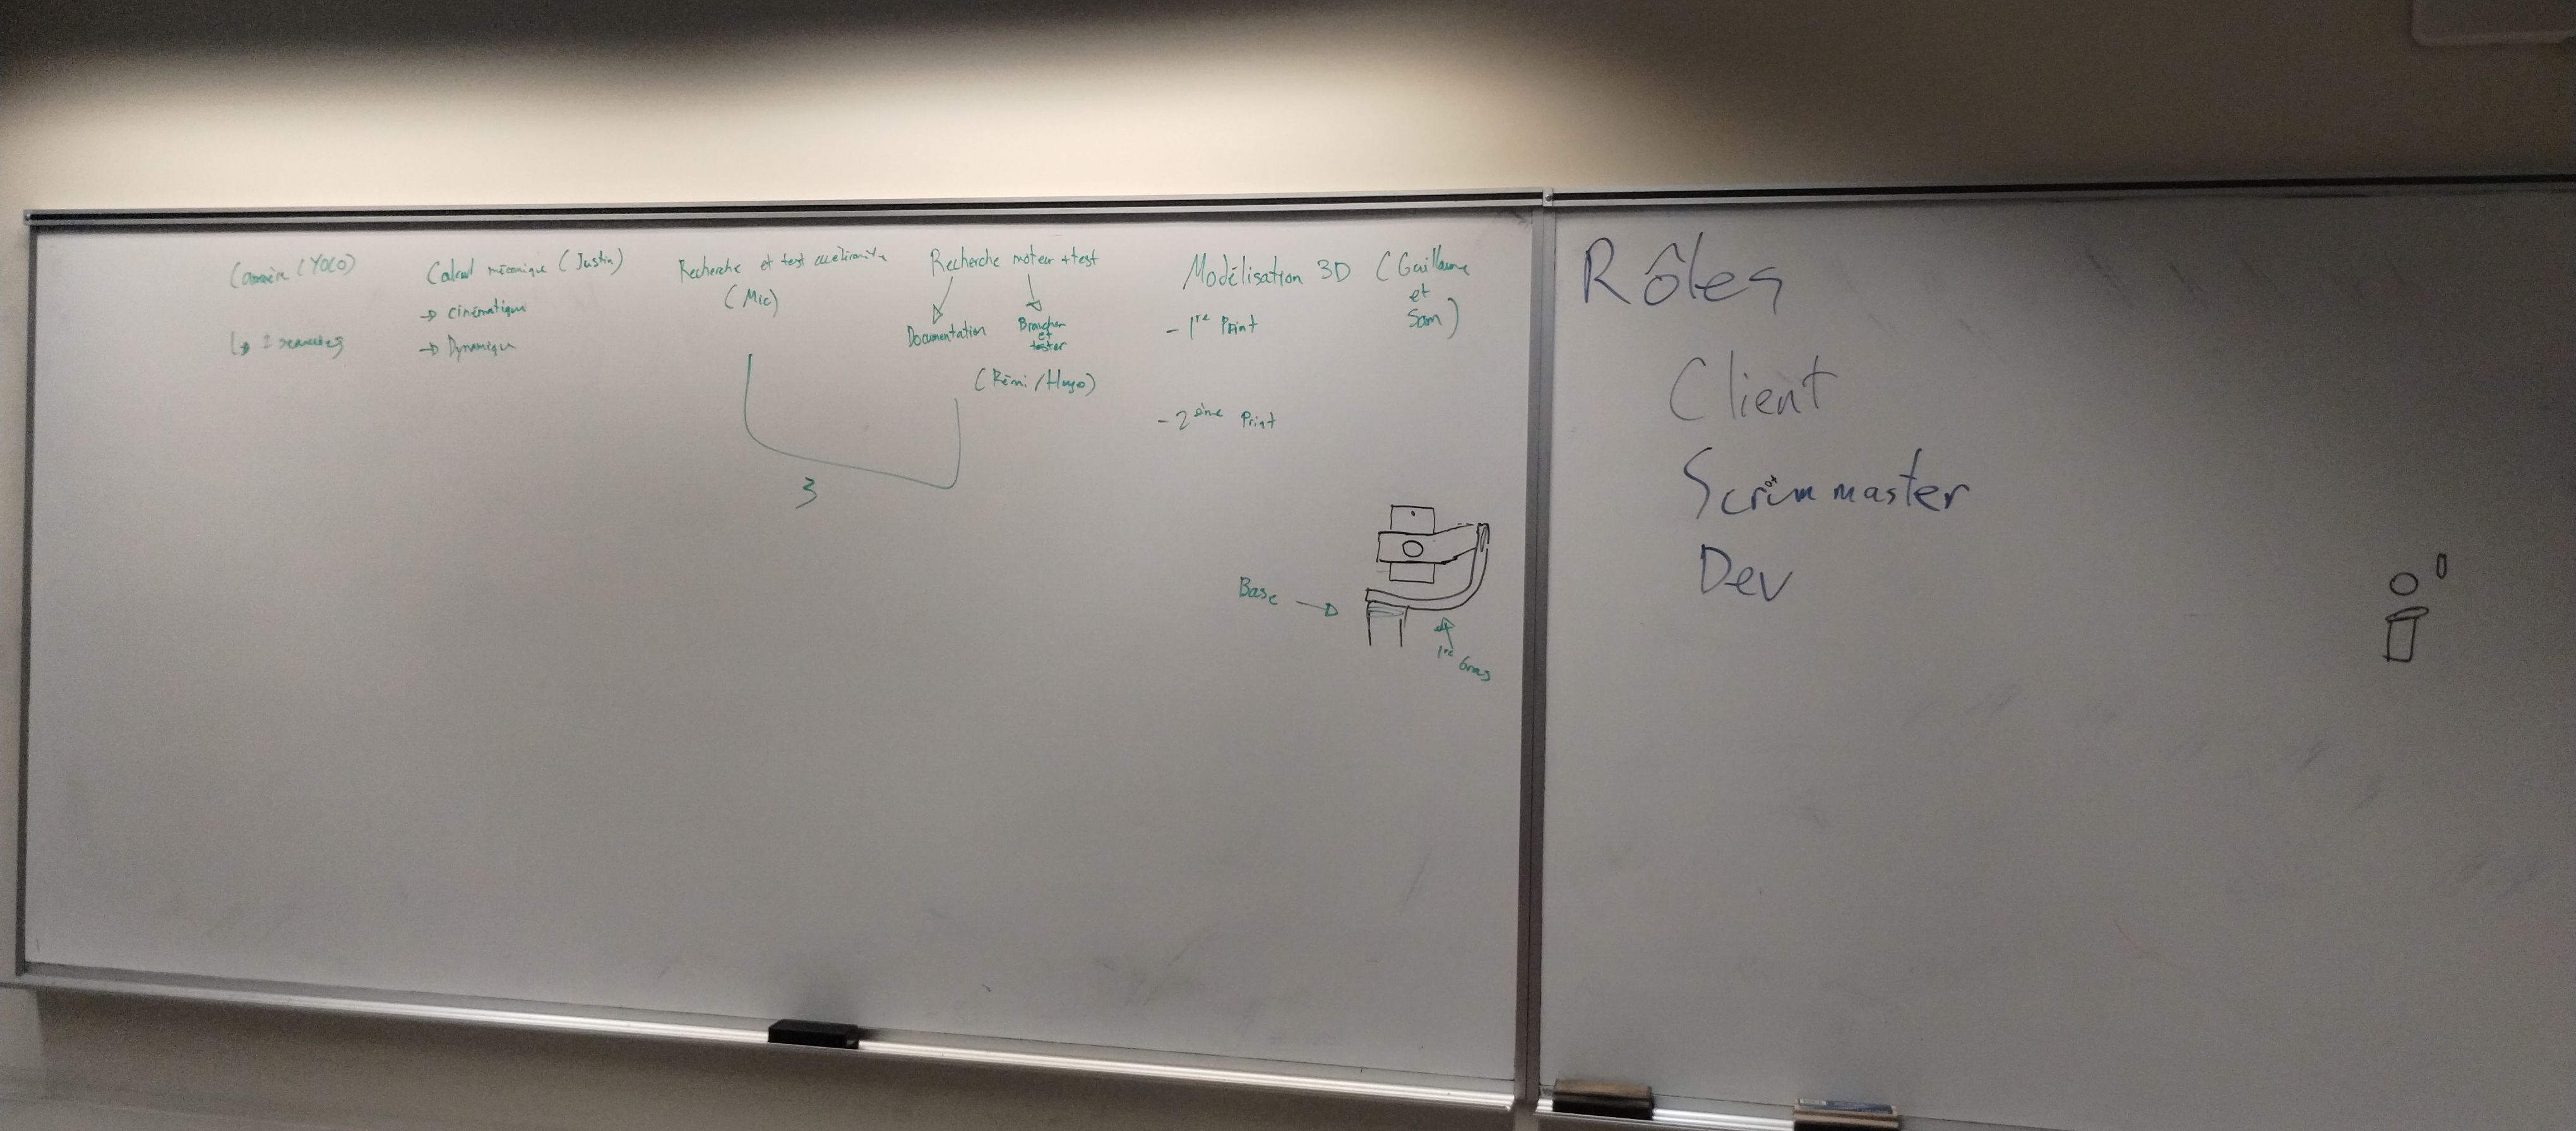 Caméra (YOLO)
↳ 2 semaines
Calcul mécanique (Justin)
→ Cinématique
→ Dynamique
Recherche et test
(Mic)
Recherche moteur + test
Documentation
Brancher
et
tester
(Rémi / Hugo)
3
Modélisation 3D (Guillaume
et
Sam)
- 1re Print
- 2ème Print
Base
1re
Rôles
Client
Scrum master
Dev